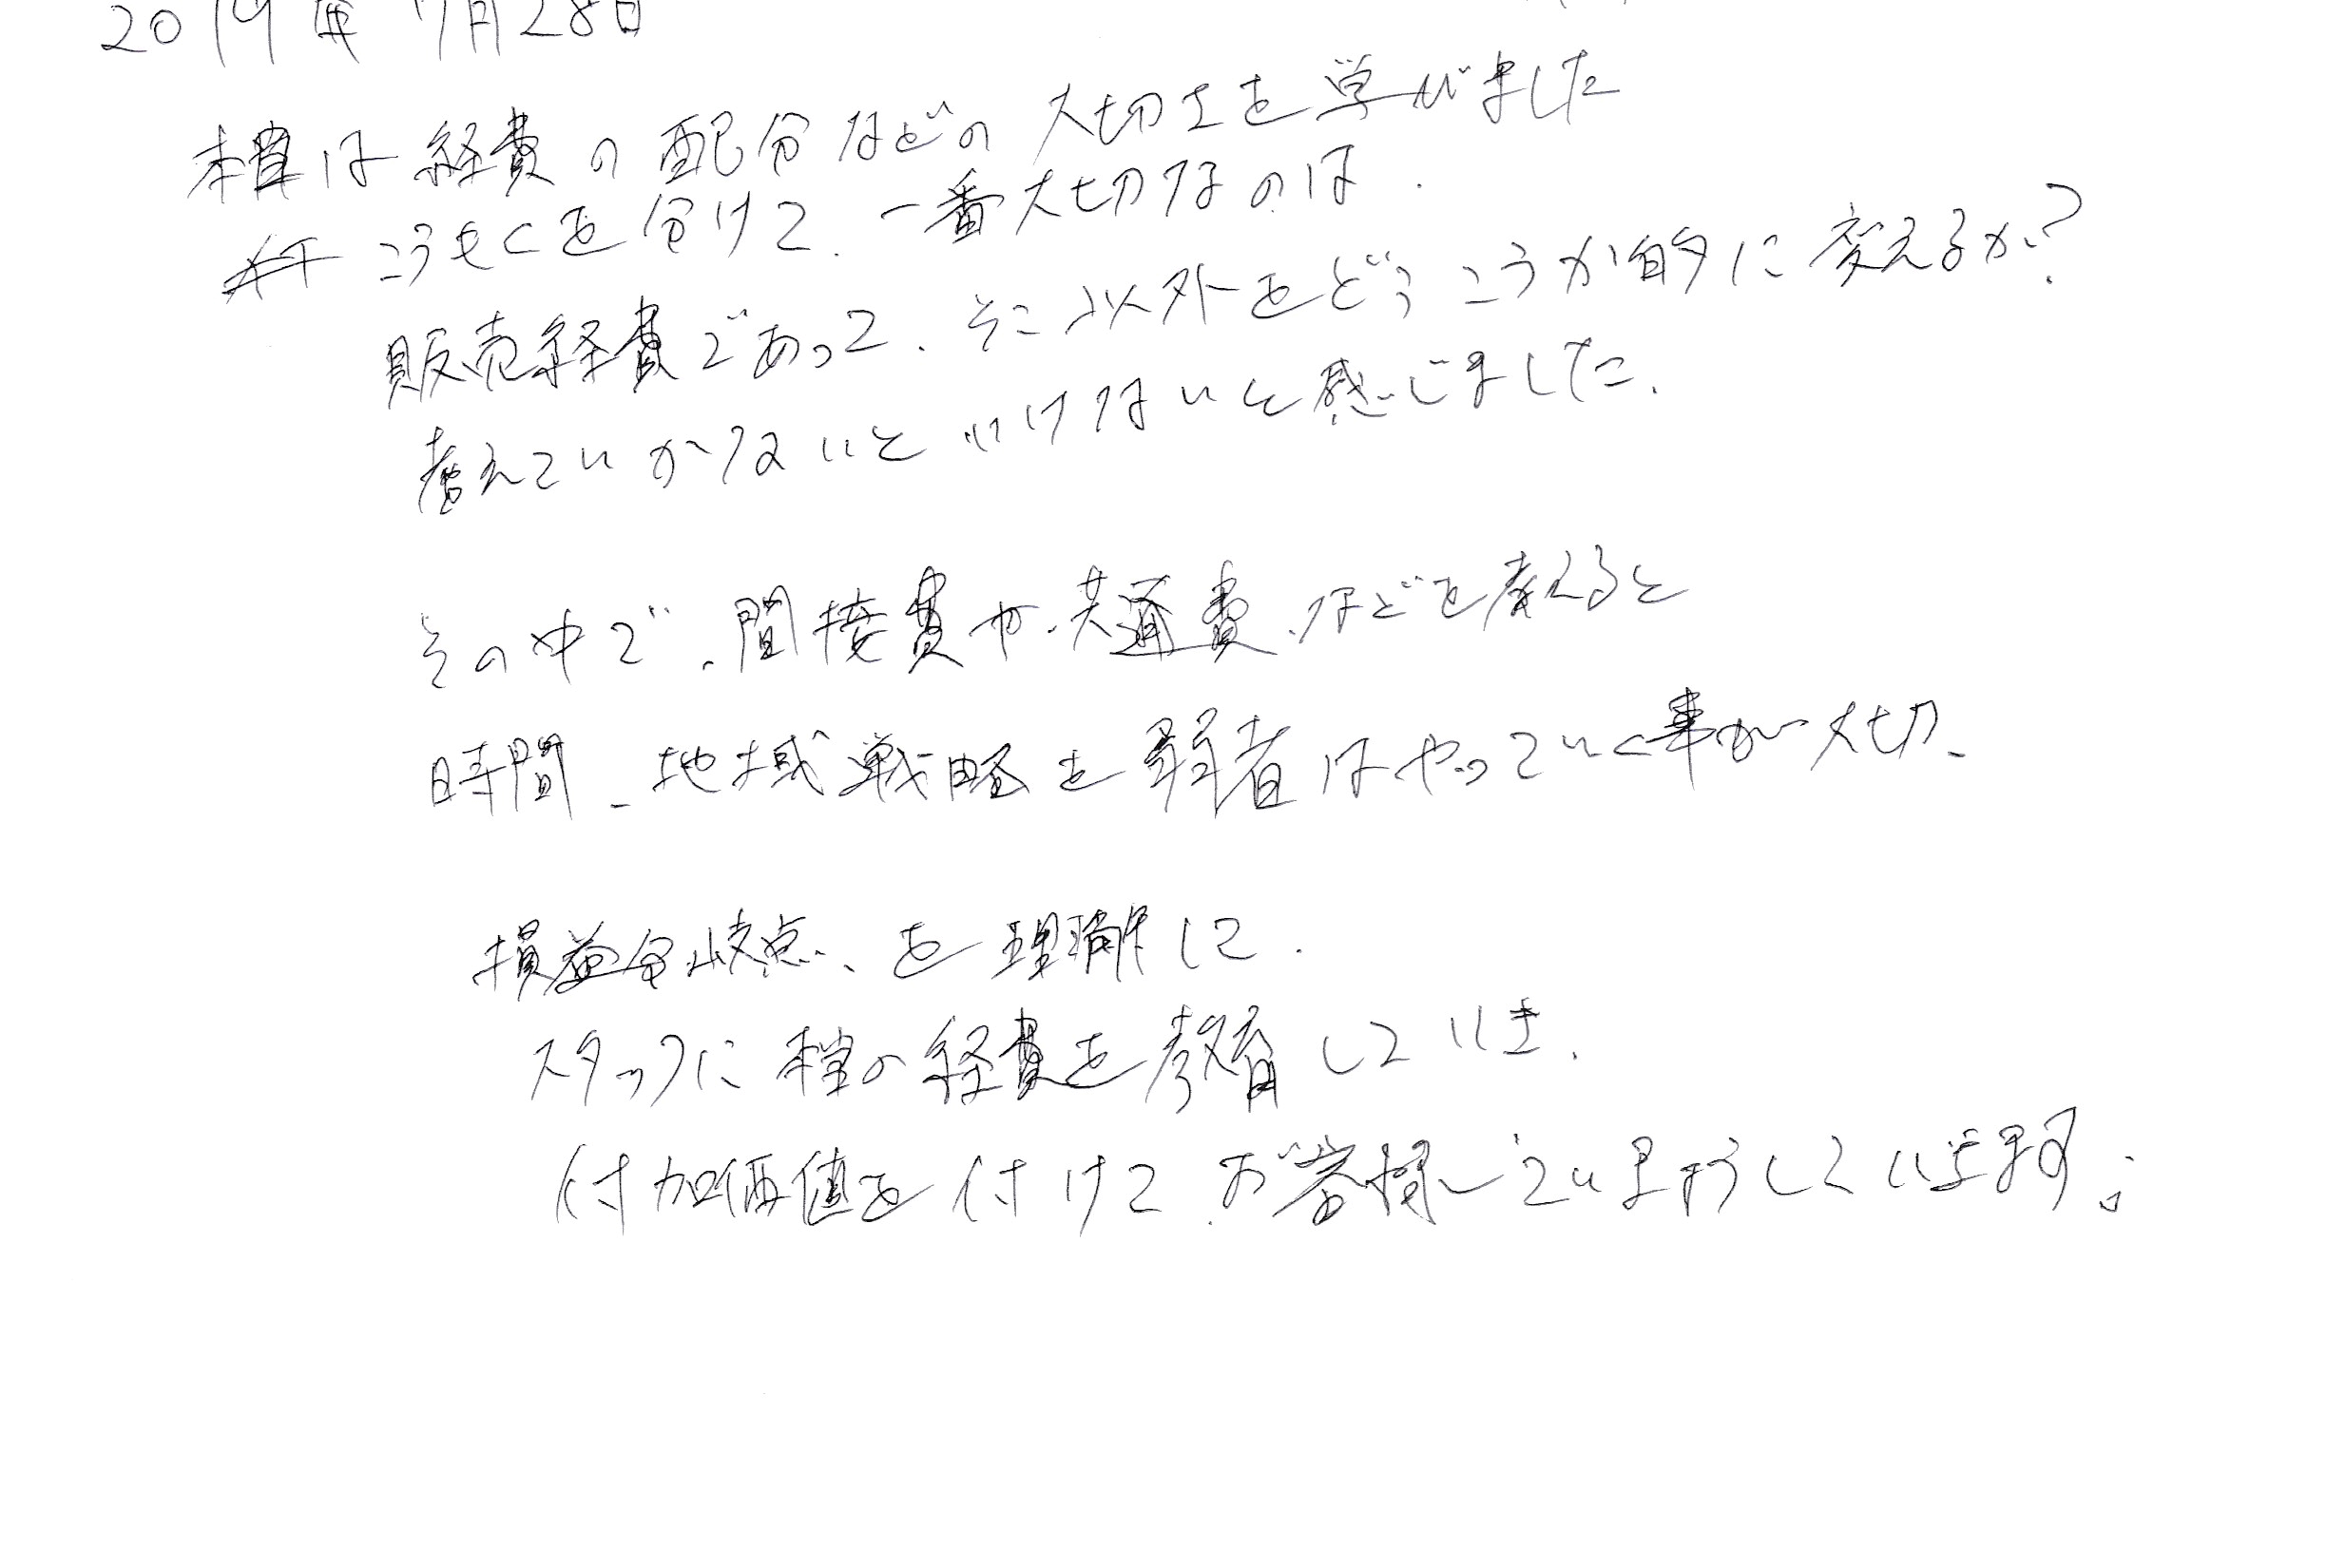 2019年7月28日
本質は経費の配分などの大切さを学びました
こうもくを分けて、一番大切なのは、
販売経費であって、そこ以外をどうこうか的に変えるか?
考えていかないといけないと感じました、
その中で、間接費や、共通費、などを考えると
時間、地域戦略を弱者はやっていく事が大切、
損益分岐点、を理解して、
スタッフに本当の経費を教育していき、
付加価値を付けて、お客様